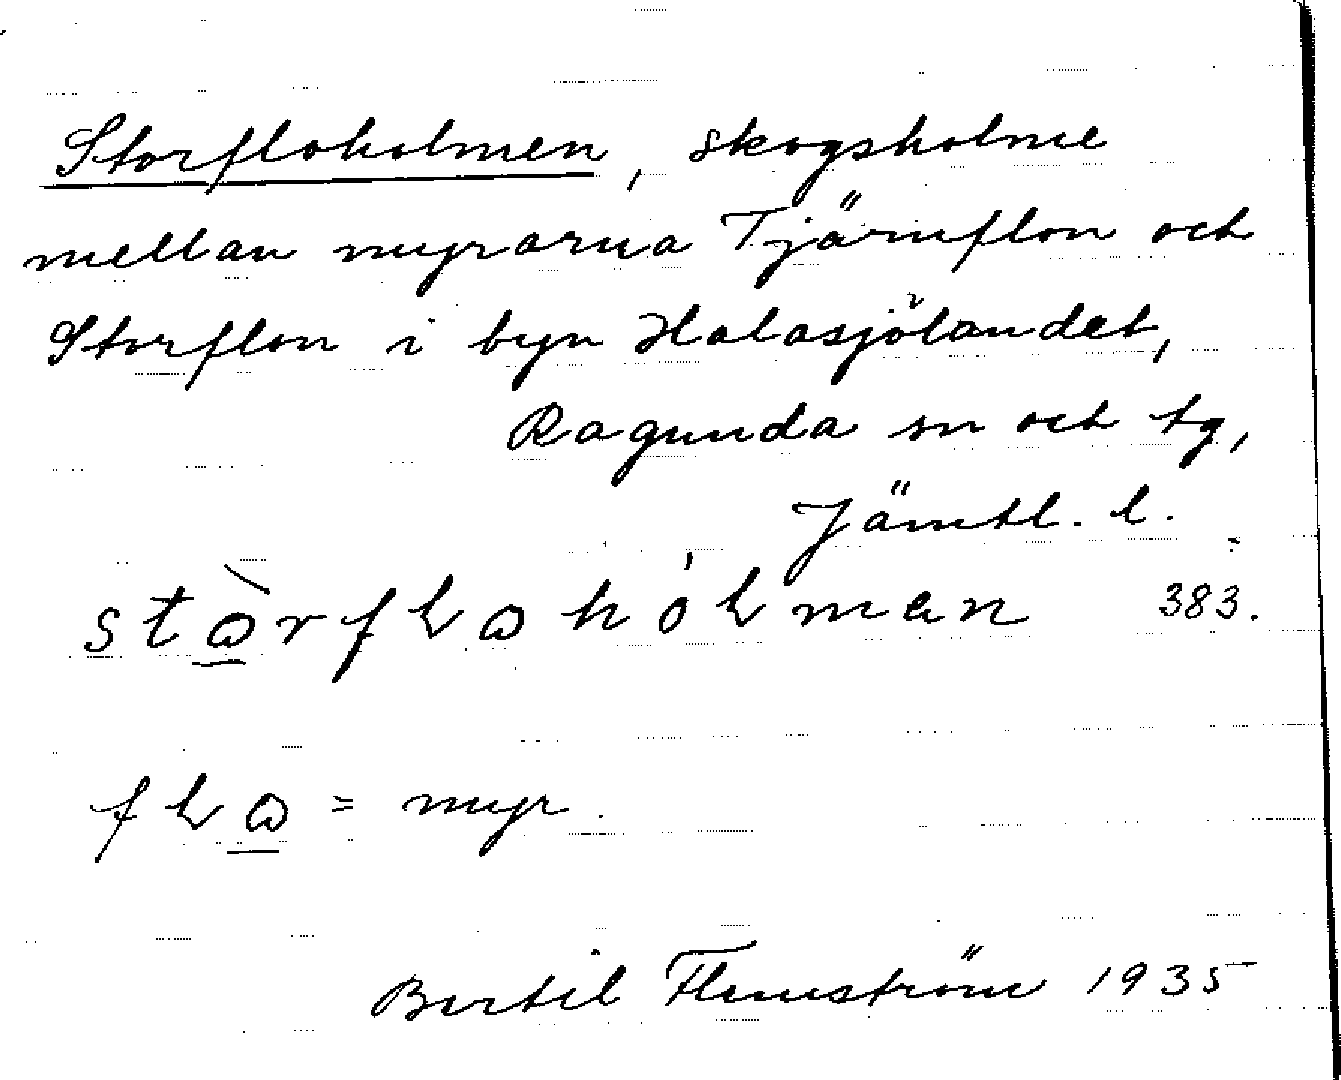 Storfloholmen, skogsholme
mellan myrarna Tjärnflon och
Storflon i byn Halasjölandet,
Ragunda sn och tg,
Jämtl. l.
stɷ̀rfLɷhóLmen 383.
fLɷ = myr.
Bertil Flemström 1935